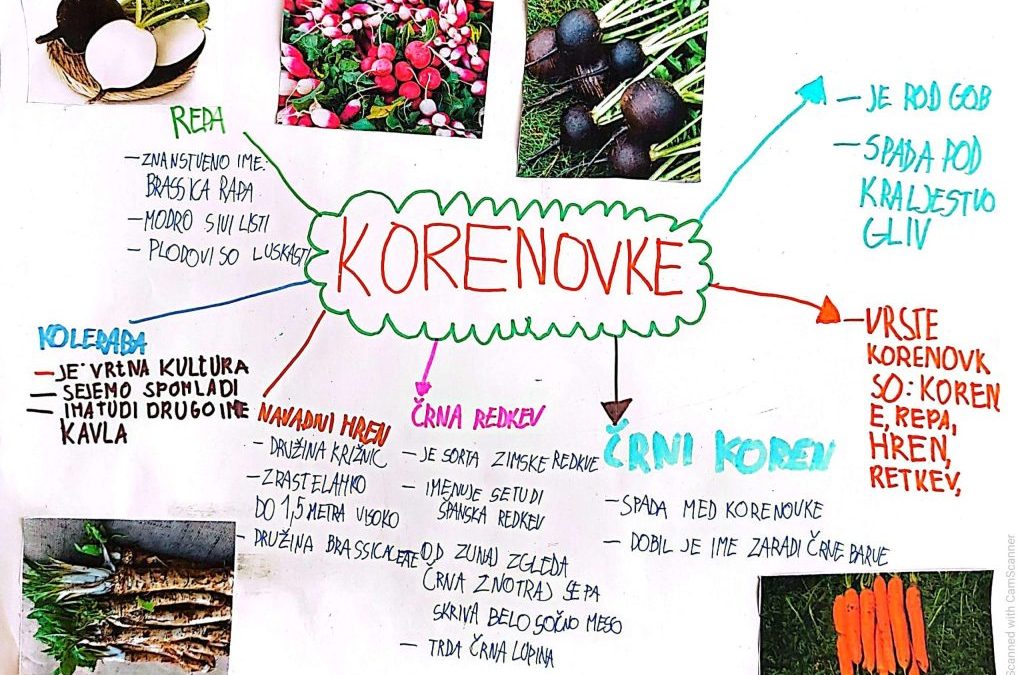 KORENOVKE
REPA
– ZNANSTVENO IME:
BRASSICA RAPA
– MODRO SIVI LISTI
– PLODOVI SO LUSKASTI
KOLERABA
– JE VRTNA KULTURA
– SEJEMO SPOMLADI
– IMA TUDI DRUGO IME
KAVLA
NAVADNI HREN
– DRUŽINA KRIŽNIC
– ZRASTE LAHKO
DO 1,5 METRA VISOKO
– DRUŽINA
ČRNA REDKEV
– JE SORTA ZIMSKE REDKVE
– IMENUJE SE TUDI
ŠPANSKA REDKEV
– OD ZUNAJ ZGLEDA
ČRNA ZNOTRAJ SE PA
SKRIVA BELO SOČNO MESO
– TRDA ČRNA LUPINA
ČRNI KOREN
– SPADA MED KORENOVKE
– DOBIL JE IME ZARADI ČRNE BARVE
– JE ROD GOB
– SPADA POD
KRALJESTVO
GLIV
– VRSTE
KORENOVK
SO: KOREN
E, REPA,
HREN,
RETKEV,
Scanned with CamScanner